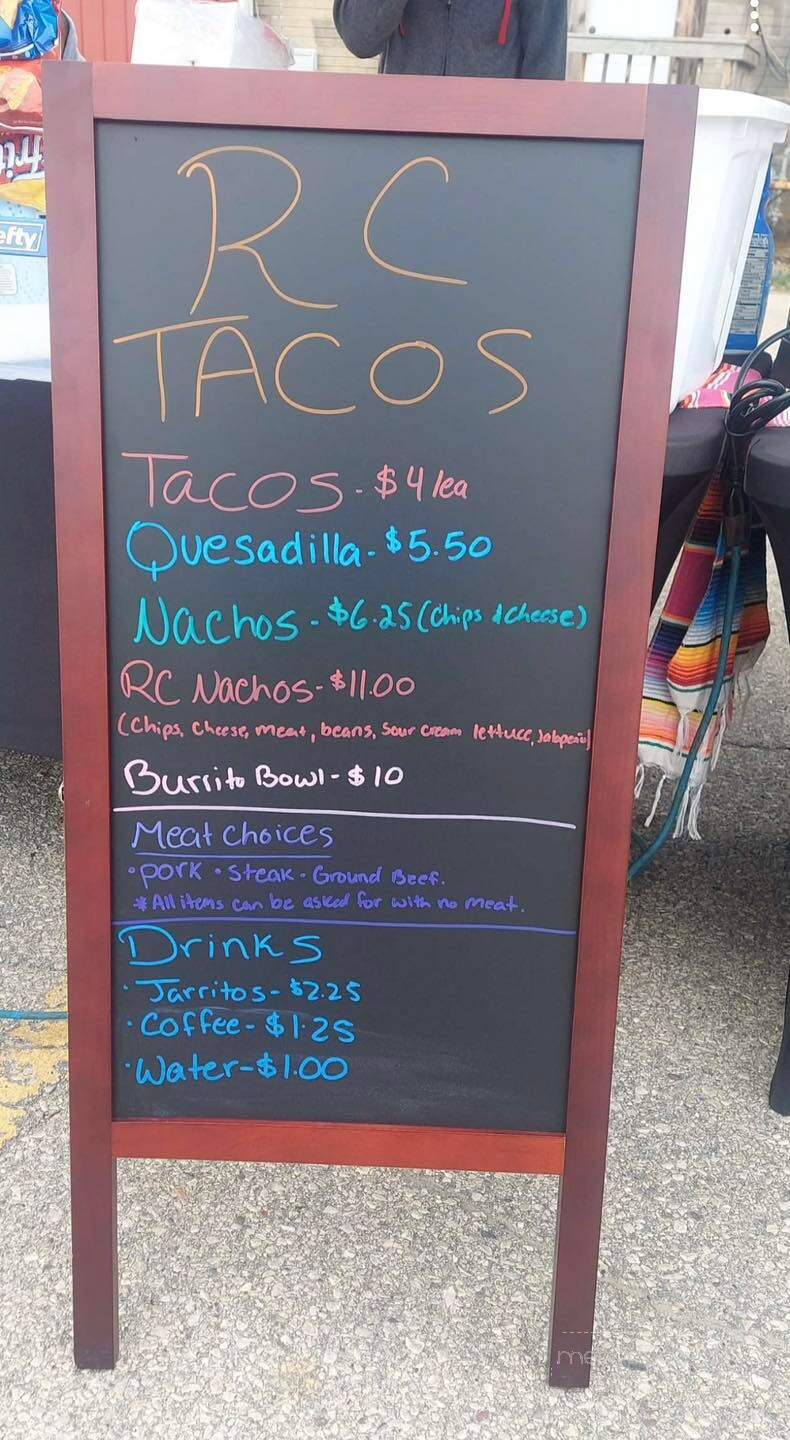 RC
TACOS
Tacos - $4/ea
Quesadilla - $5.50
Nachos - $6.25 (Chips & Cheese)
RC Nachos - $11.00
(Chips, Cheese, meat, beans, Sour Cream lettuce, Jalapeño)
Burrito Bowl - $10
Meat Choices
• pork • Steak • Ground Beef.
* All items can be asked for with no meat.
Drinks
• Jarritos - $2.25
• Coffee - $1.25
• Water - $1.00
efty